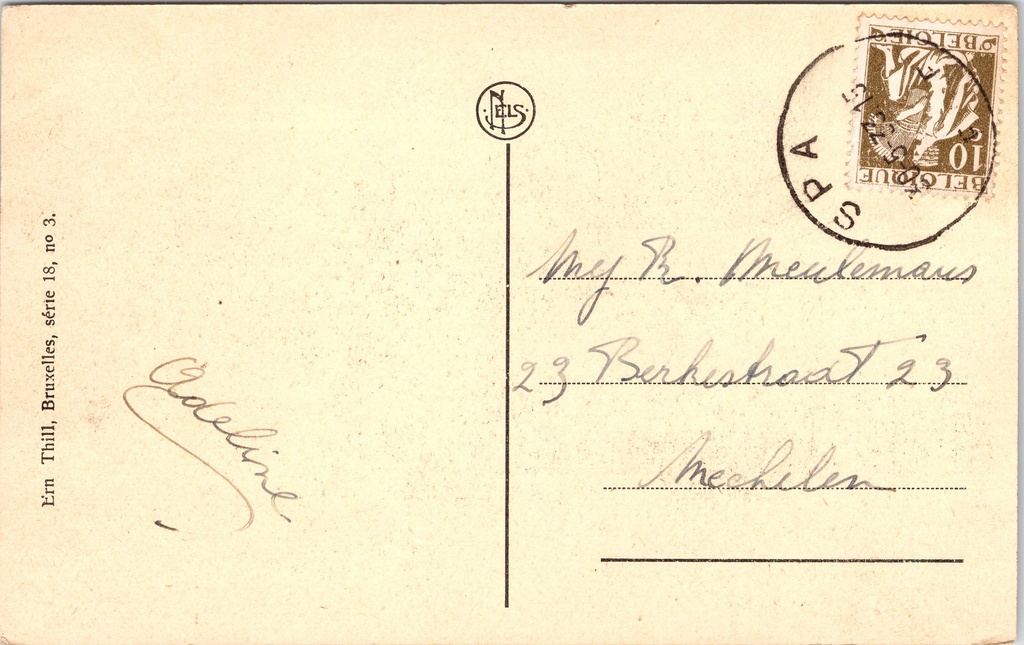 NELS
BELGIE
10
BELGIQUE
SPA
Ern Thill, Bruxelles, série 18, no 3.
Adeline
Mej R. Meulemans
23 Berkestraat 23
Mechelen